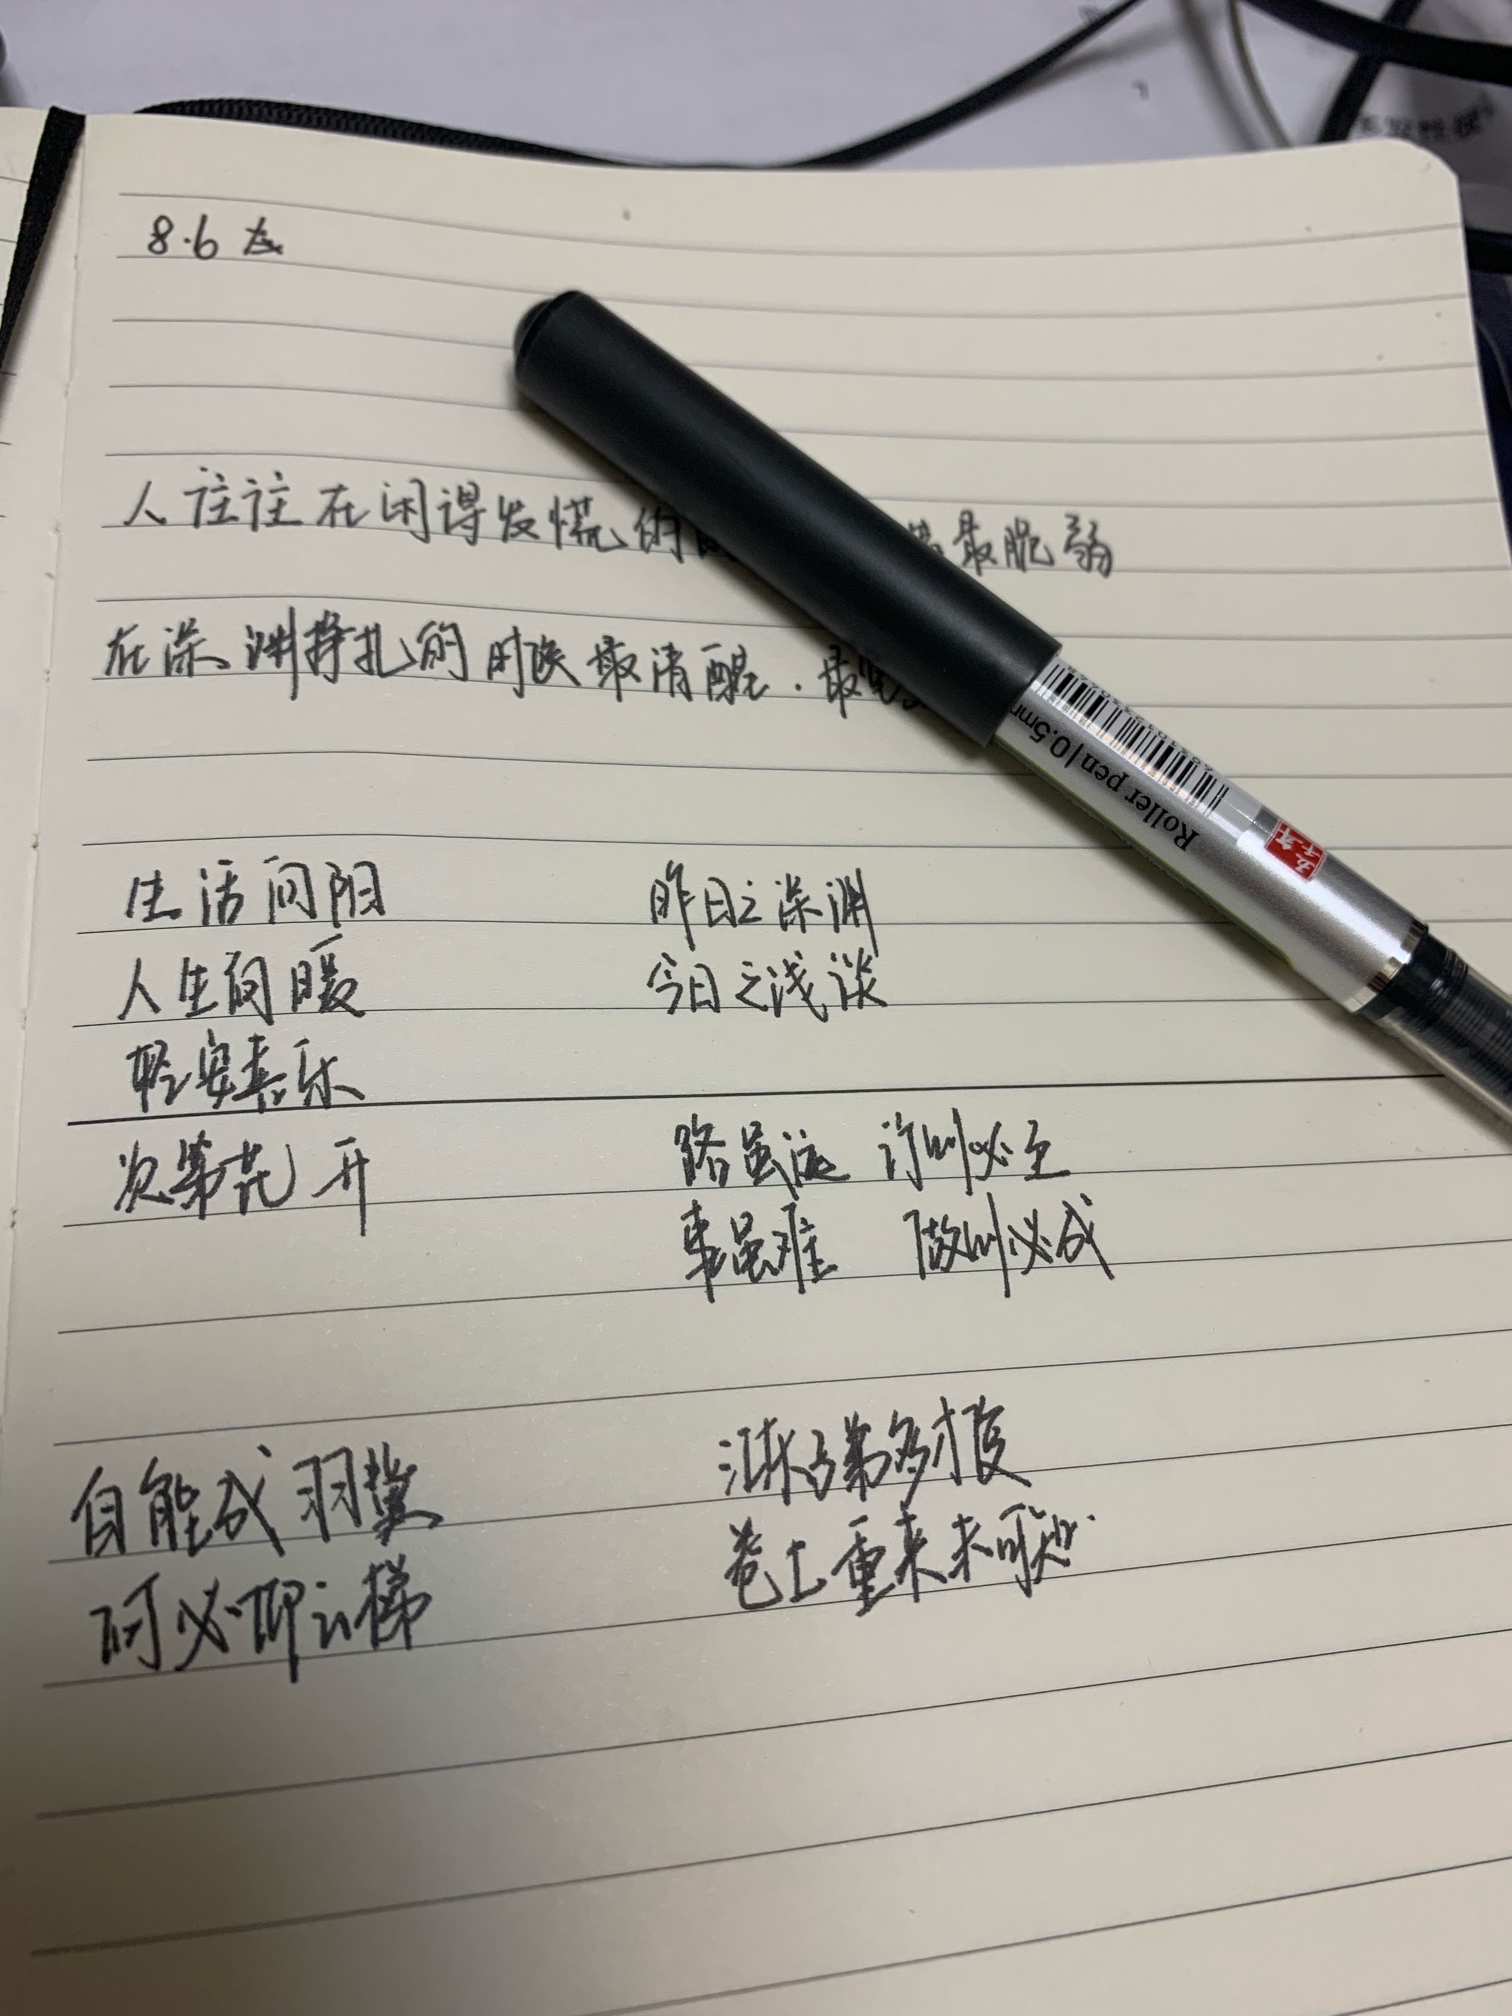 8.6
人往往在闲得发慌的 最脆弱
在深渊挣扎的时候最清醒.最
生活向阳
人生向暖
轻安喜乐
次第花开
昨日之深渊
今日之浅谈
路虽远 行则必至
事虽难 做则必成
自能成羽翼
何必仰云梯
江东子弟多才俊
卷土重来未可知.
Roller pen|0.5m